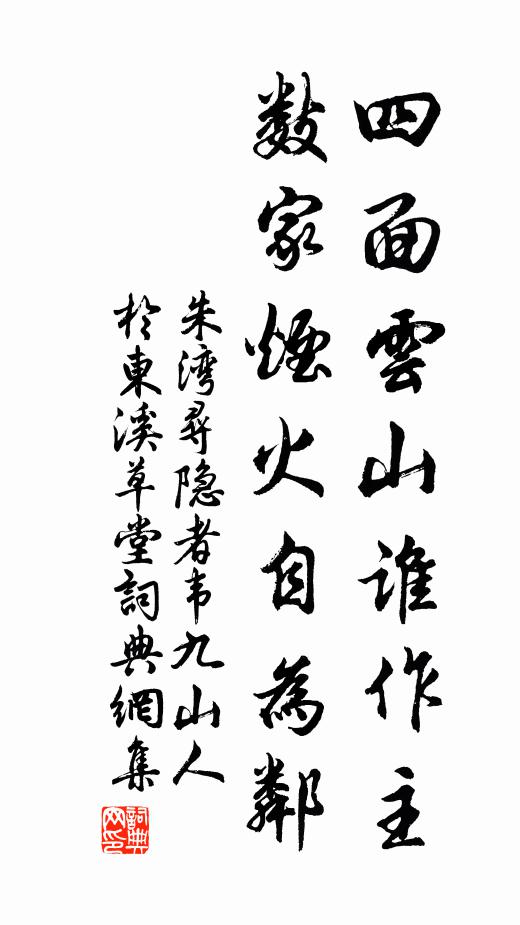 四面雲山誰作主
数家煙火自為鄰
朱湾尋隐者韦九山人
於東溪草堂詞典網集
詞典网印